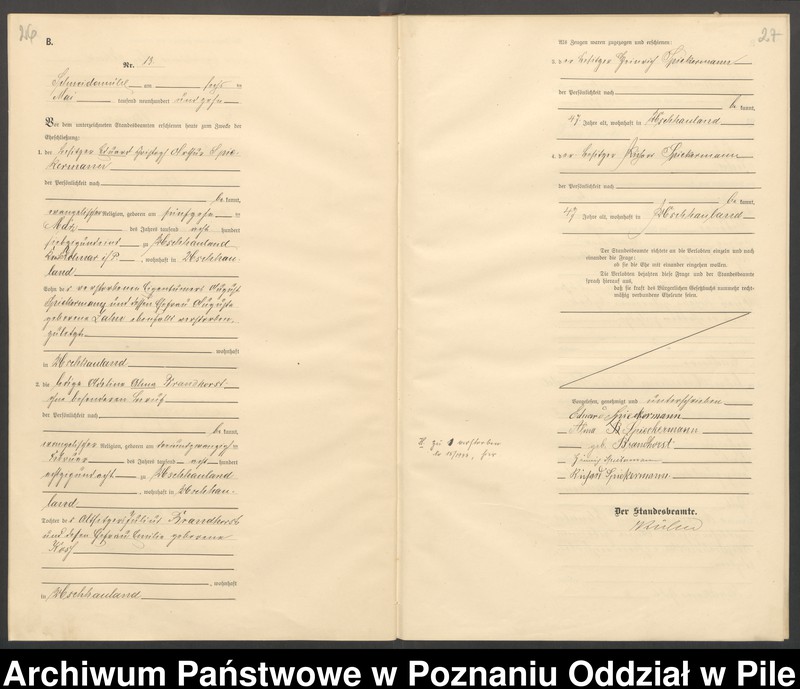 B.
Nr. 13
Schneidemühl am sechs ten
Mai tausend neunhundert und zehn
Vor dem unterzeichneten Standesbeamten erschienen heute zum Zwecke der
Eheschließung:
1. der Besitzer Eduard Arthur Spie-
kermann
der Persönlichkeit nach
be kannt,
evangelischer Religion, geboren am fünfzehn ten
März des Jahres tausend acht hundert
siebzig und zu Uschhauland
Kr. Kolmar i/P., wohnhaft in Uschhau-
land
Sohn des verstorbenen Eigentümers August
Spiekermann und dessen Ehefrau Auguste
geborene ebenfalls verstorben,
zuletzt
wohnhaft
in Uschhauland
2. die ledige Adeline Alma Brandhorst
ohne besonderen Beruf
der Persönlichkeit nach
be kannt,
evangelischer Religion, geboren am zwanzig ten
Februar des Jahres tausend acht hundert
achtzig und acht zu Uschhauland
, wohnhaft in Uschhau-
land
Tochter des Besitzers Julius Brandhorst
und dessen Ehefrau Emilie geborene
wohnhaft
in Uschhauland
27
Als Zeugen waren zugezogen und erschienen:
3. der Besitzer Heinrich Spiekermann
der Persönlichkeit nach
be kannt,
47 Jahre alt, wohnhaft in Uschhauland
4. der Besitzer Richard Spiekermann
der Persönlichkeit nach
be kannt,
47 Jahre alt, wohnhaft in Uschhauland
Der Standesbeamte richtete an die Verlobten einzeln und nach
einander die Frage:
ob sie die Ehe mit einander eingehen wollen.
Die Verlobten bejahten diese Frage und der Standesbeamte
sprach hierauf aus,
daß sie kraft des Bürgerlichen Gesetzbuchs nunmehr recht-
mäßig verbundene Eheleute seien.
Vorgelesen, genehmigt und unterschrieben
Eduard Spiekermann
Alma Spiekermann
geb. Brandhorst
Heinrich Spiekermann
Richard Spiekermann
Der Standesbeamte.
zu 1 verstorben
Archiwum Państwowe w Poznaniu Oddział w Pile